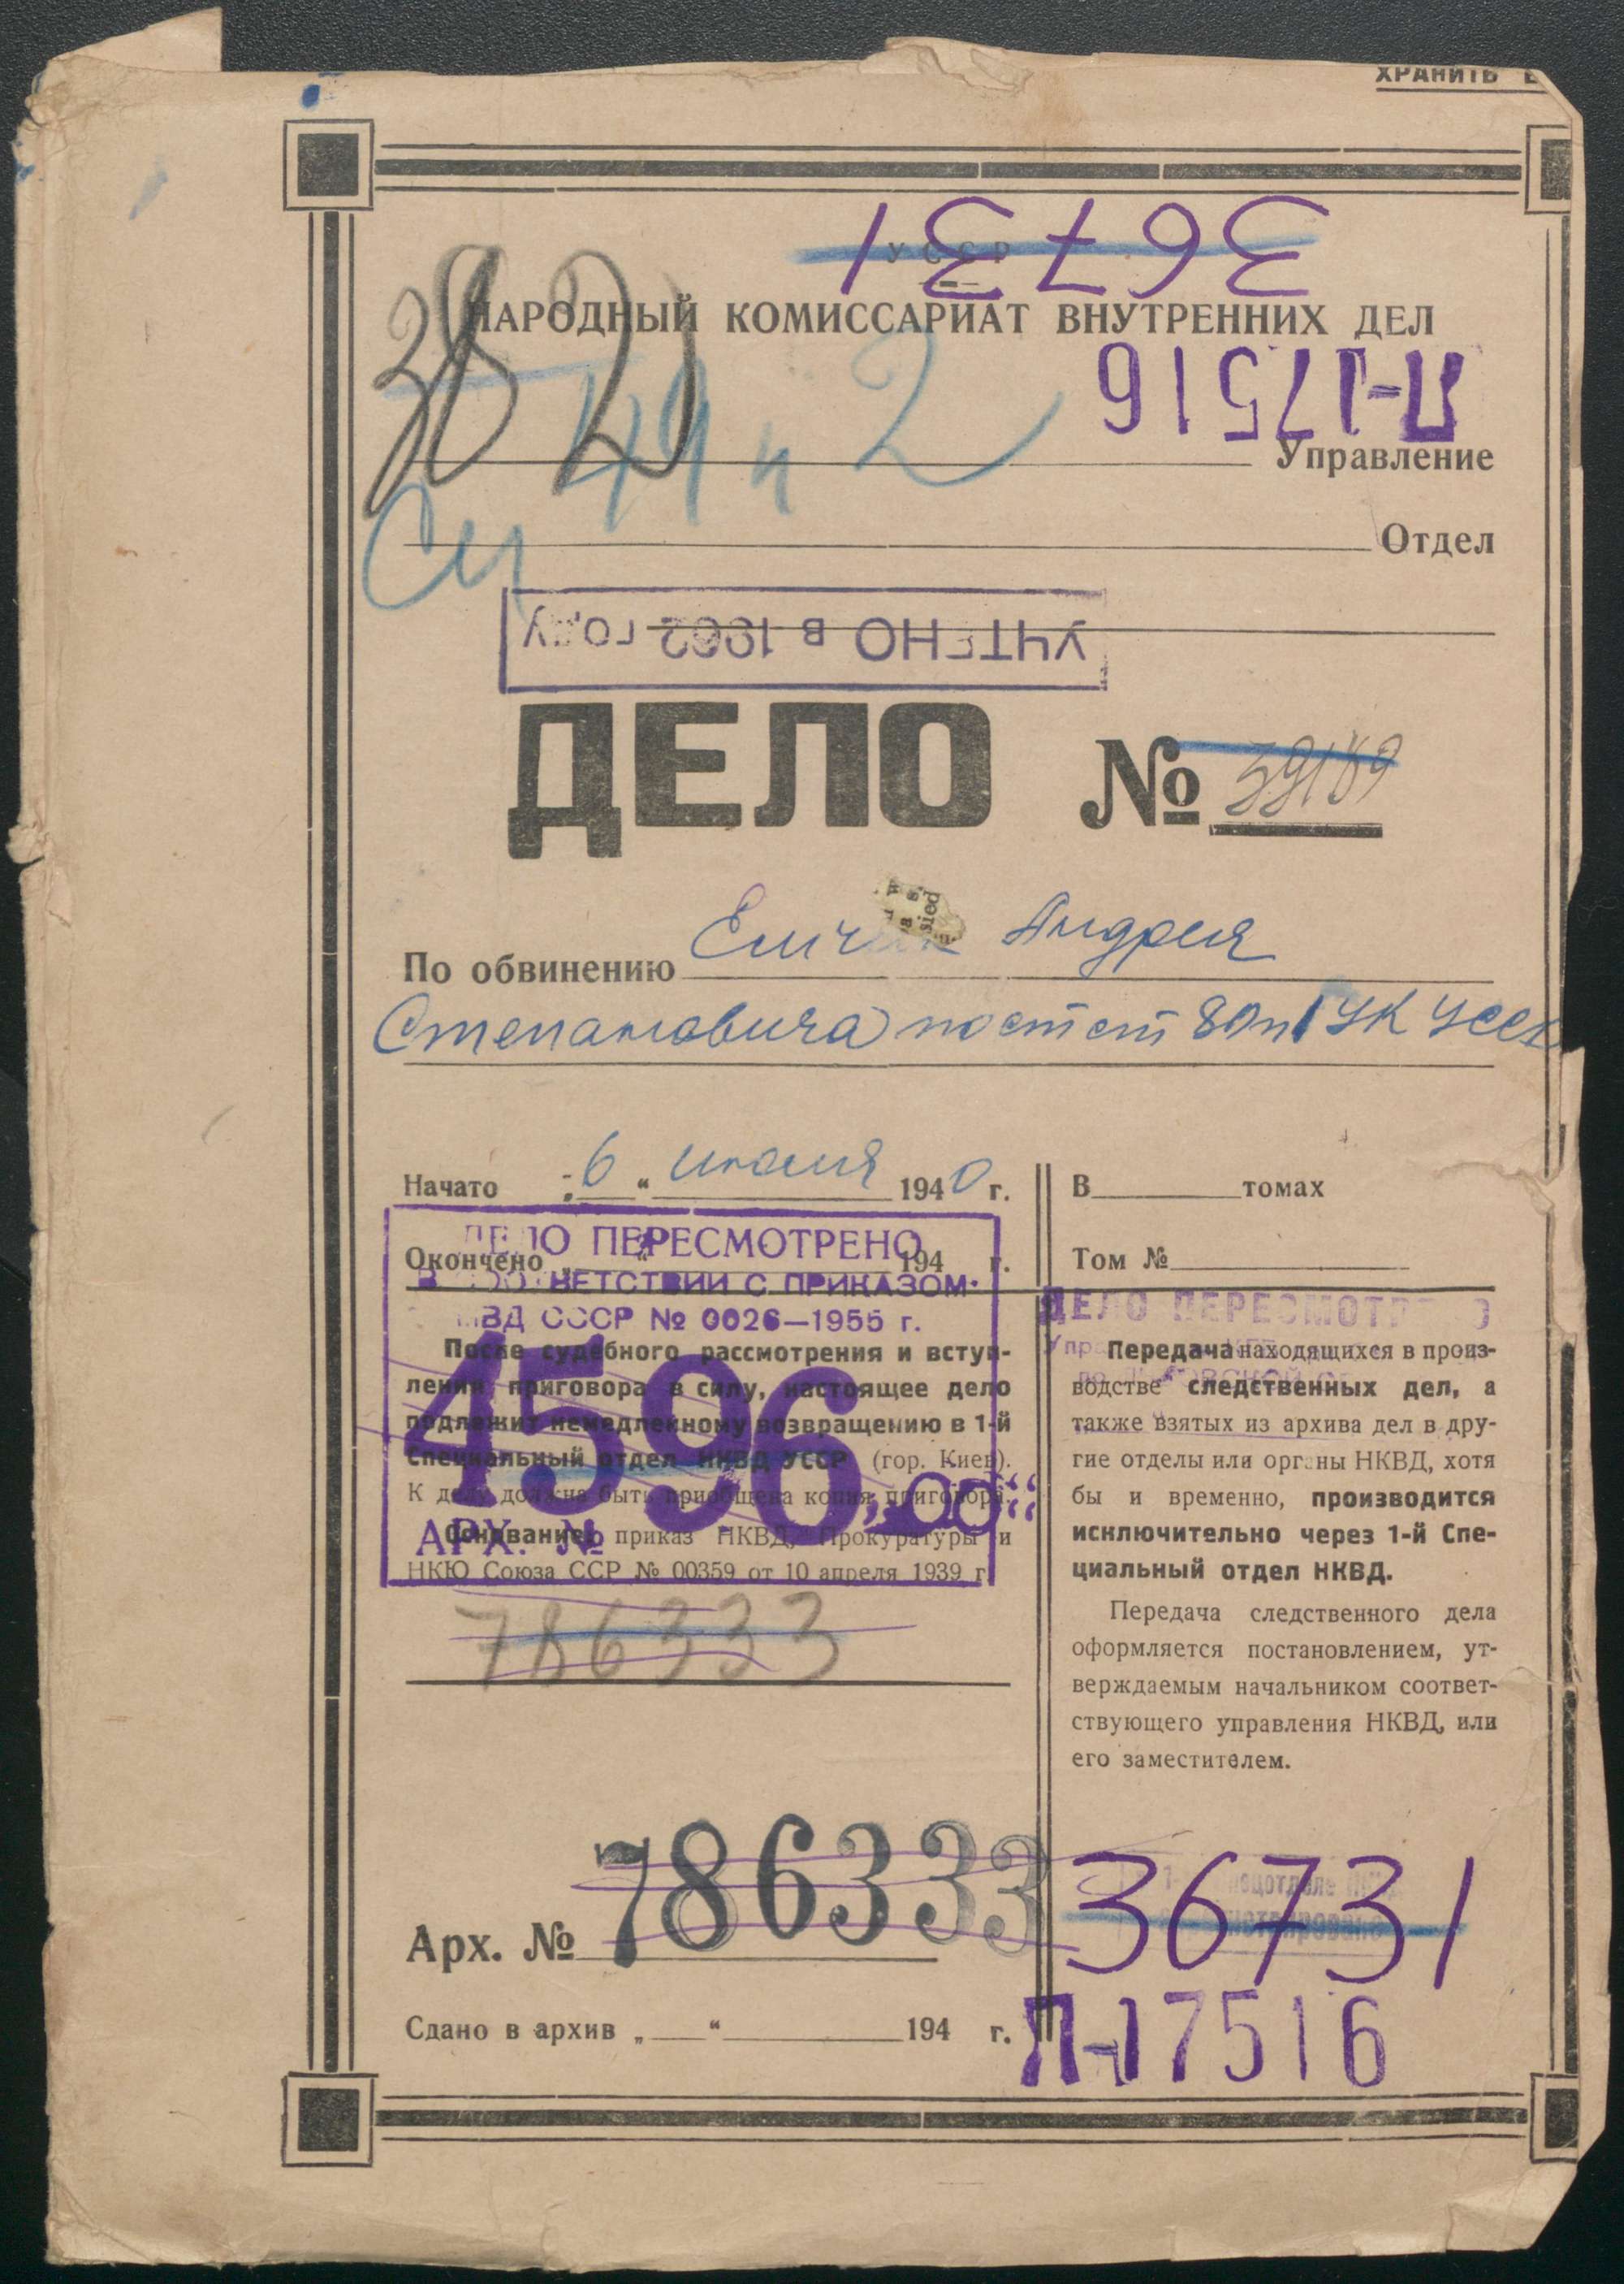 ХРАНИТЬ
УССР
36731
НАРОДНЫЙ КОМИССАРИАТ ВНУТРЕННИХ ДЕЛ
П-17516
49 п 2
Управление
Отдел
УЧТЕНО В 1962 ГОДУ
ДЕЛО № 39189
По обвинению Андрея
Степановича по ст ст 80 п 1 УК УССР
Начато „6“ июля 1940 г.
В томах
Окончено „ “ 194 г.
Том №
ДЕЛО ПЕРЕСМОТРЕНО
В СООТВЕТСТВИИ С ПРИКАЗОМ
МВД СССР № 0026—1955 г.
4596
„ОС“
АРХ. №
После судебного рассмотрения и вступ-
ления приговора в силу, настоящее дело
подлежит немедленному возвращению в 1-й
Специальный отдел НКВД УССР (гор. Киев).
К делу должна быть приобщена копия приговора.
Основание: приказ НКВД, Прокуратуры и
НКЮ Союза ССР № 00359 от 10 апреля 1939 г.
786333
ДЕЛО ПЕРЕСМОТРЕНО
Передача находящихся в произ-
водстве следственных дел, а
также взятых из архива дел в дру-
гие отделы или органы НКВД, хотя
бы и временно, производится
исключительно через 1-й Спе-
циальный отдел НКВД.
Передача следственного дела
оформляется постановлением, ут-
верждаемым начальником соответ-
ствующего управления НКВД, или
его заместителем.
Арх. № 786333
36731
Сдано в архив „ “ 194 г.
П-17516